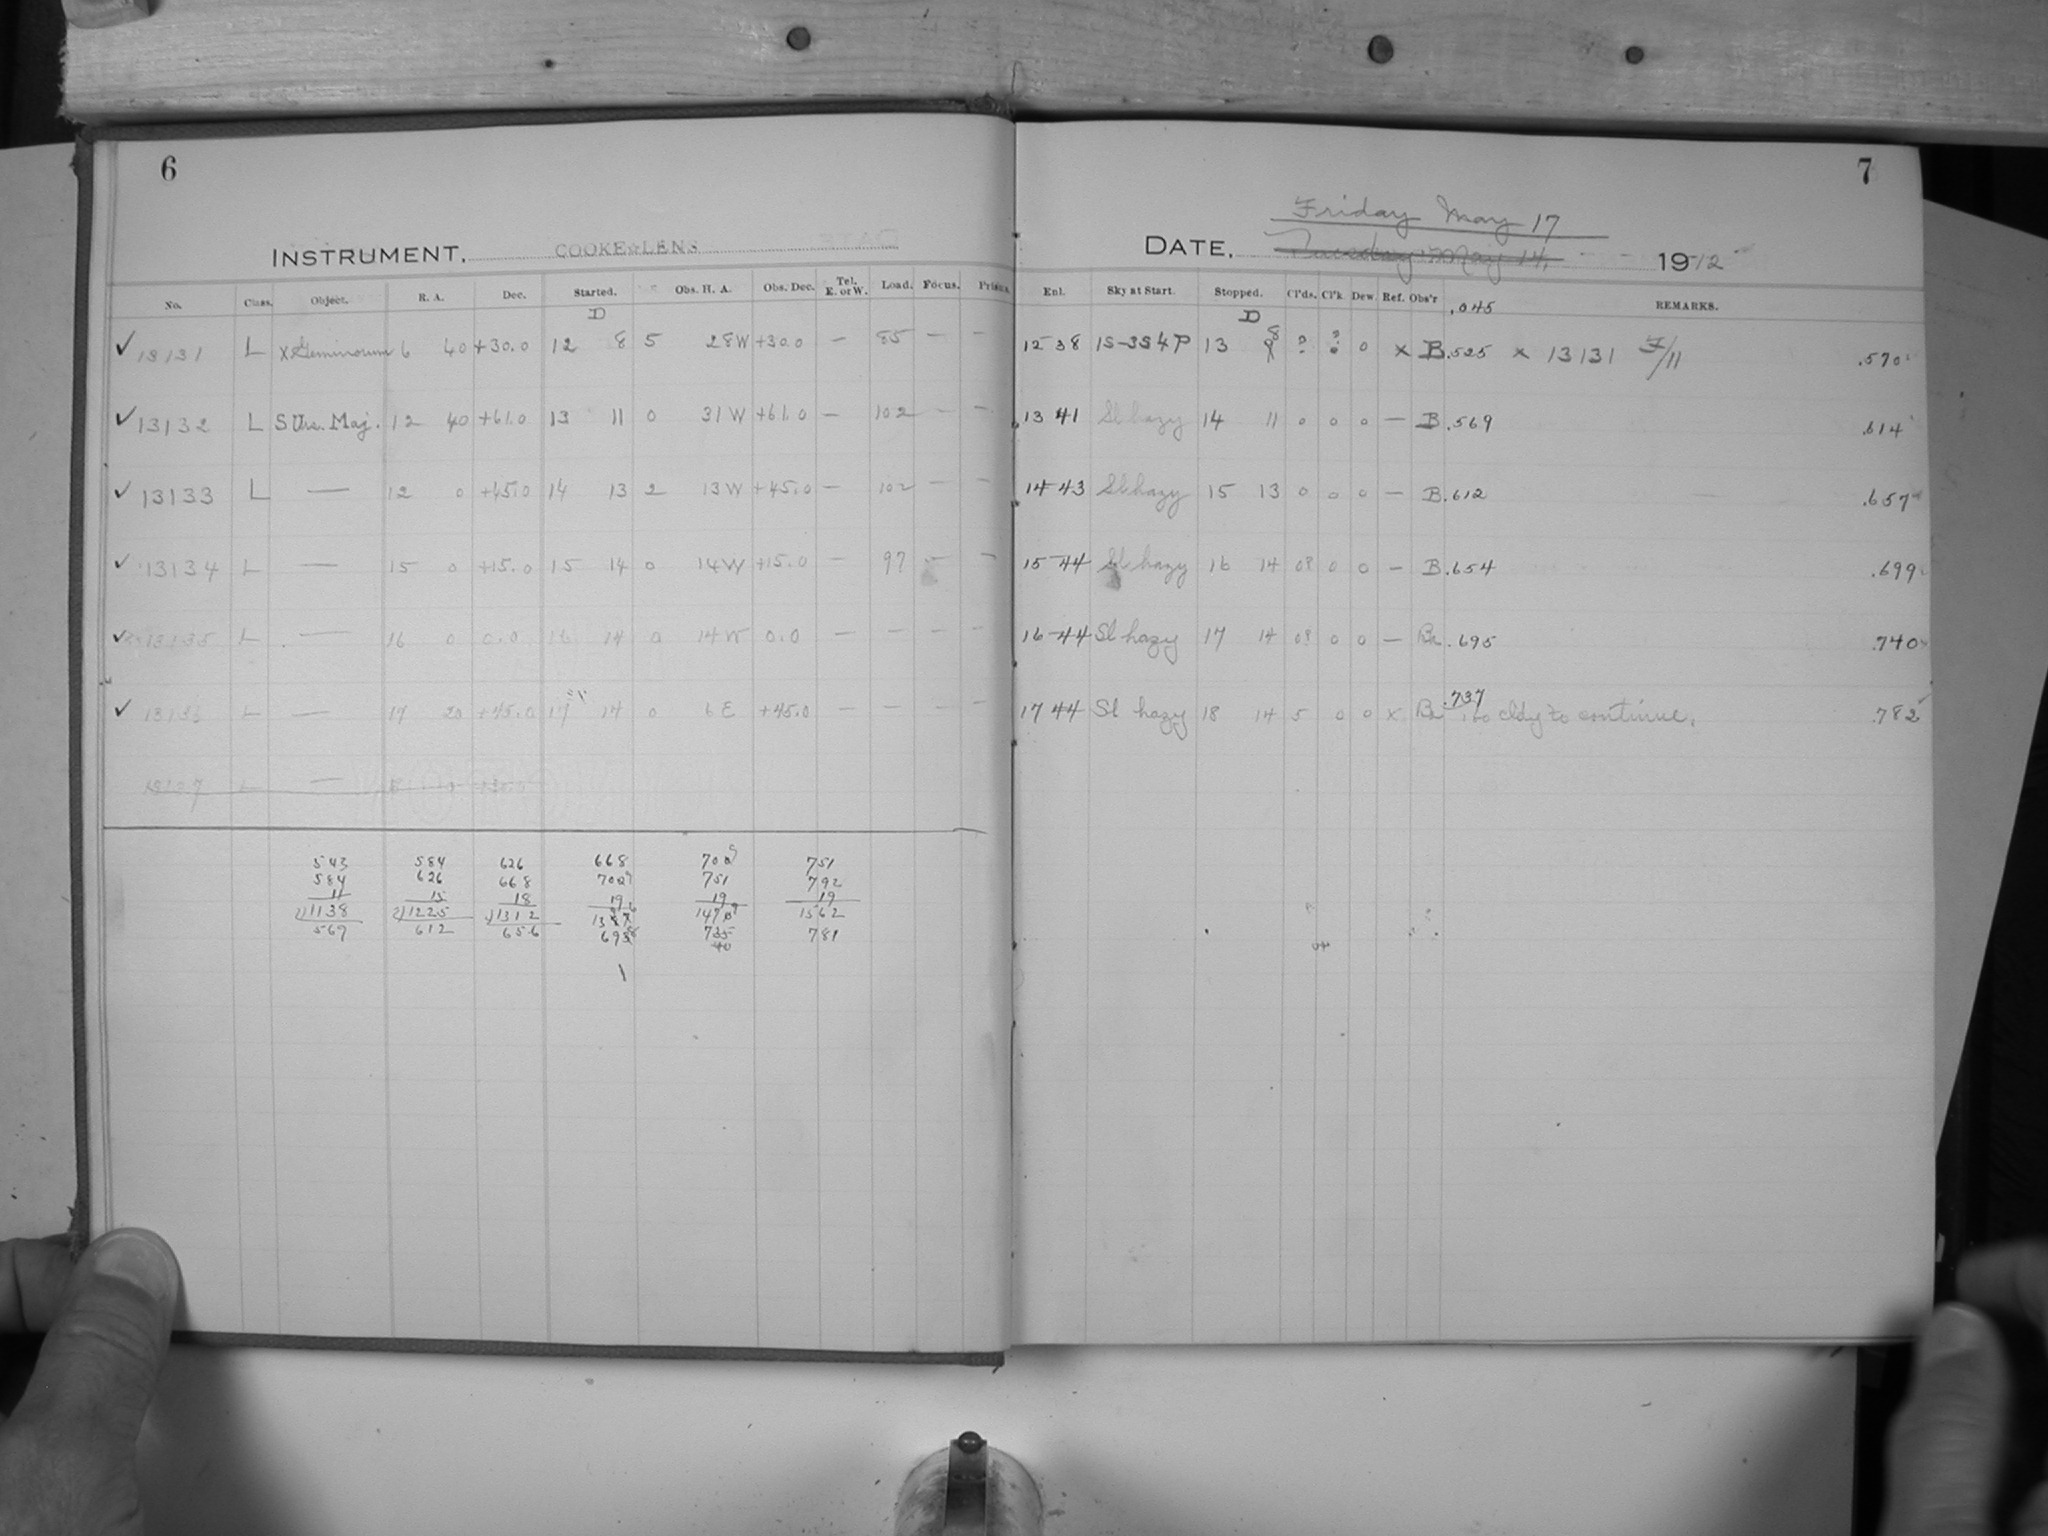 6
INSTRUMENT, COOKE LENS
No. Class. Object. R. A. Dec. Started. Obs. H. A. Obs. Dec. Tel. E. or W. Load. Focus. Prisms.
D
✓ 13131 L X Geminorum 6 40 +30.0 12 8 5 28W +30.0 — 85 — —
✓ 13132 L S Urs. Maj. 12 40 +61.0 13 11 0 31W +61.0 — 102 — —
✓ 13133 L — 12 0 +45.0 14 13 2 13W +45.0 — 102 — —
✓ 13134 L — 15 0 +15.0 15 14 0 14W +15.0 — 97 — —
✓ 13135 L — 16 0 0.0 16 14 0 14W 0.0 — — — —
✓ 13136 L — 17 20 +45.0 17 14 0 6E +45.0 — — — —
L —
543 584 626 668 751
584 626 668 751 792
11 15 18 19 19 19
2)1138 2)1225 2)1312 1562
569 612 656 781
40
7
Friday May 17
DATE, Tuesday May 14, 1912
Enl. Sky at Start. Stopped. Cl'ds. Cl'k Dew. Ref. Obs'r .045 REMARKS.
D
12 38 1S-3S4P 13 8 ? ? 0 x B .525 x 13131 F/11 .570
13 41 Sl hazy 14 11 0 0 0 — B .569 .614
14 43 Sl hazy 15 13 0 0 0 — B .612 .657
15 44 Sl hazy 16 14 0? 0 0 — B .654 .699
16 44 Sl hazy 17 14 0? 0 0 — Ba .695 .740
17 44 Sl hazy 18 14 5 0 0 x Ba .737 Too cldy to continue. .782